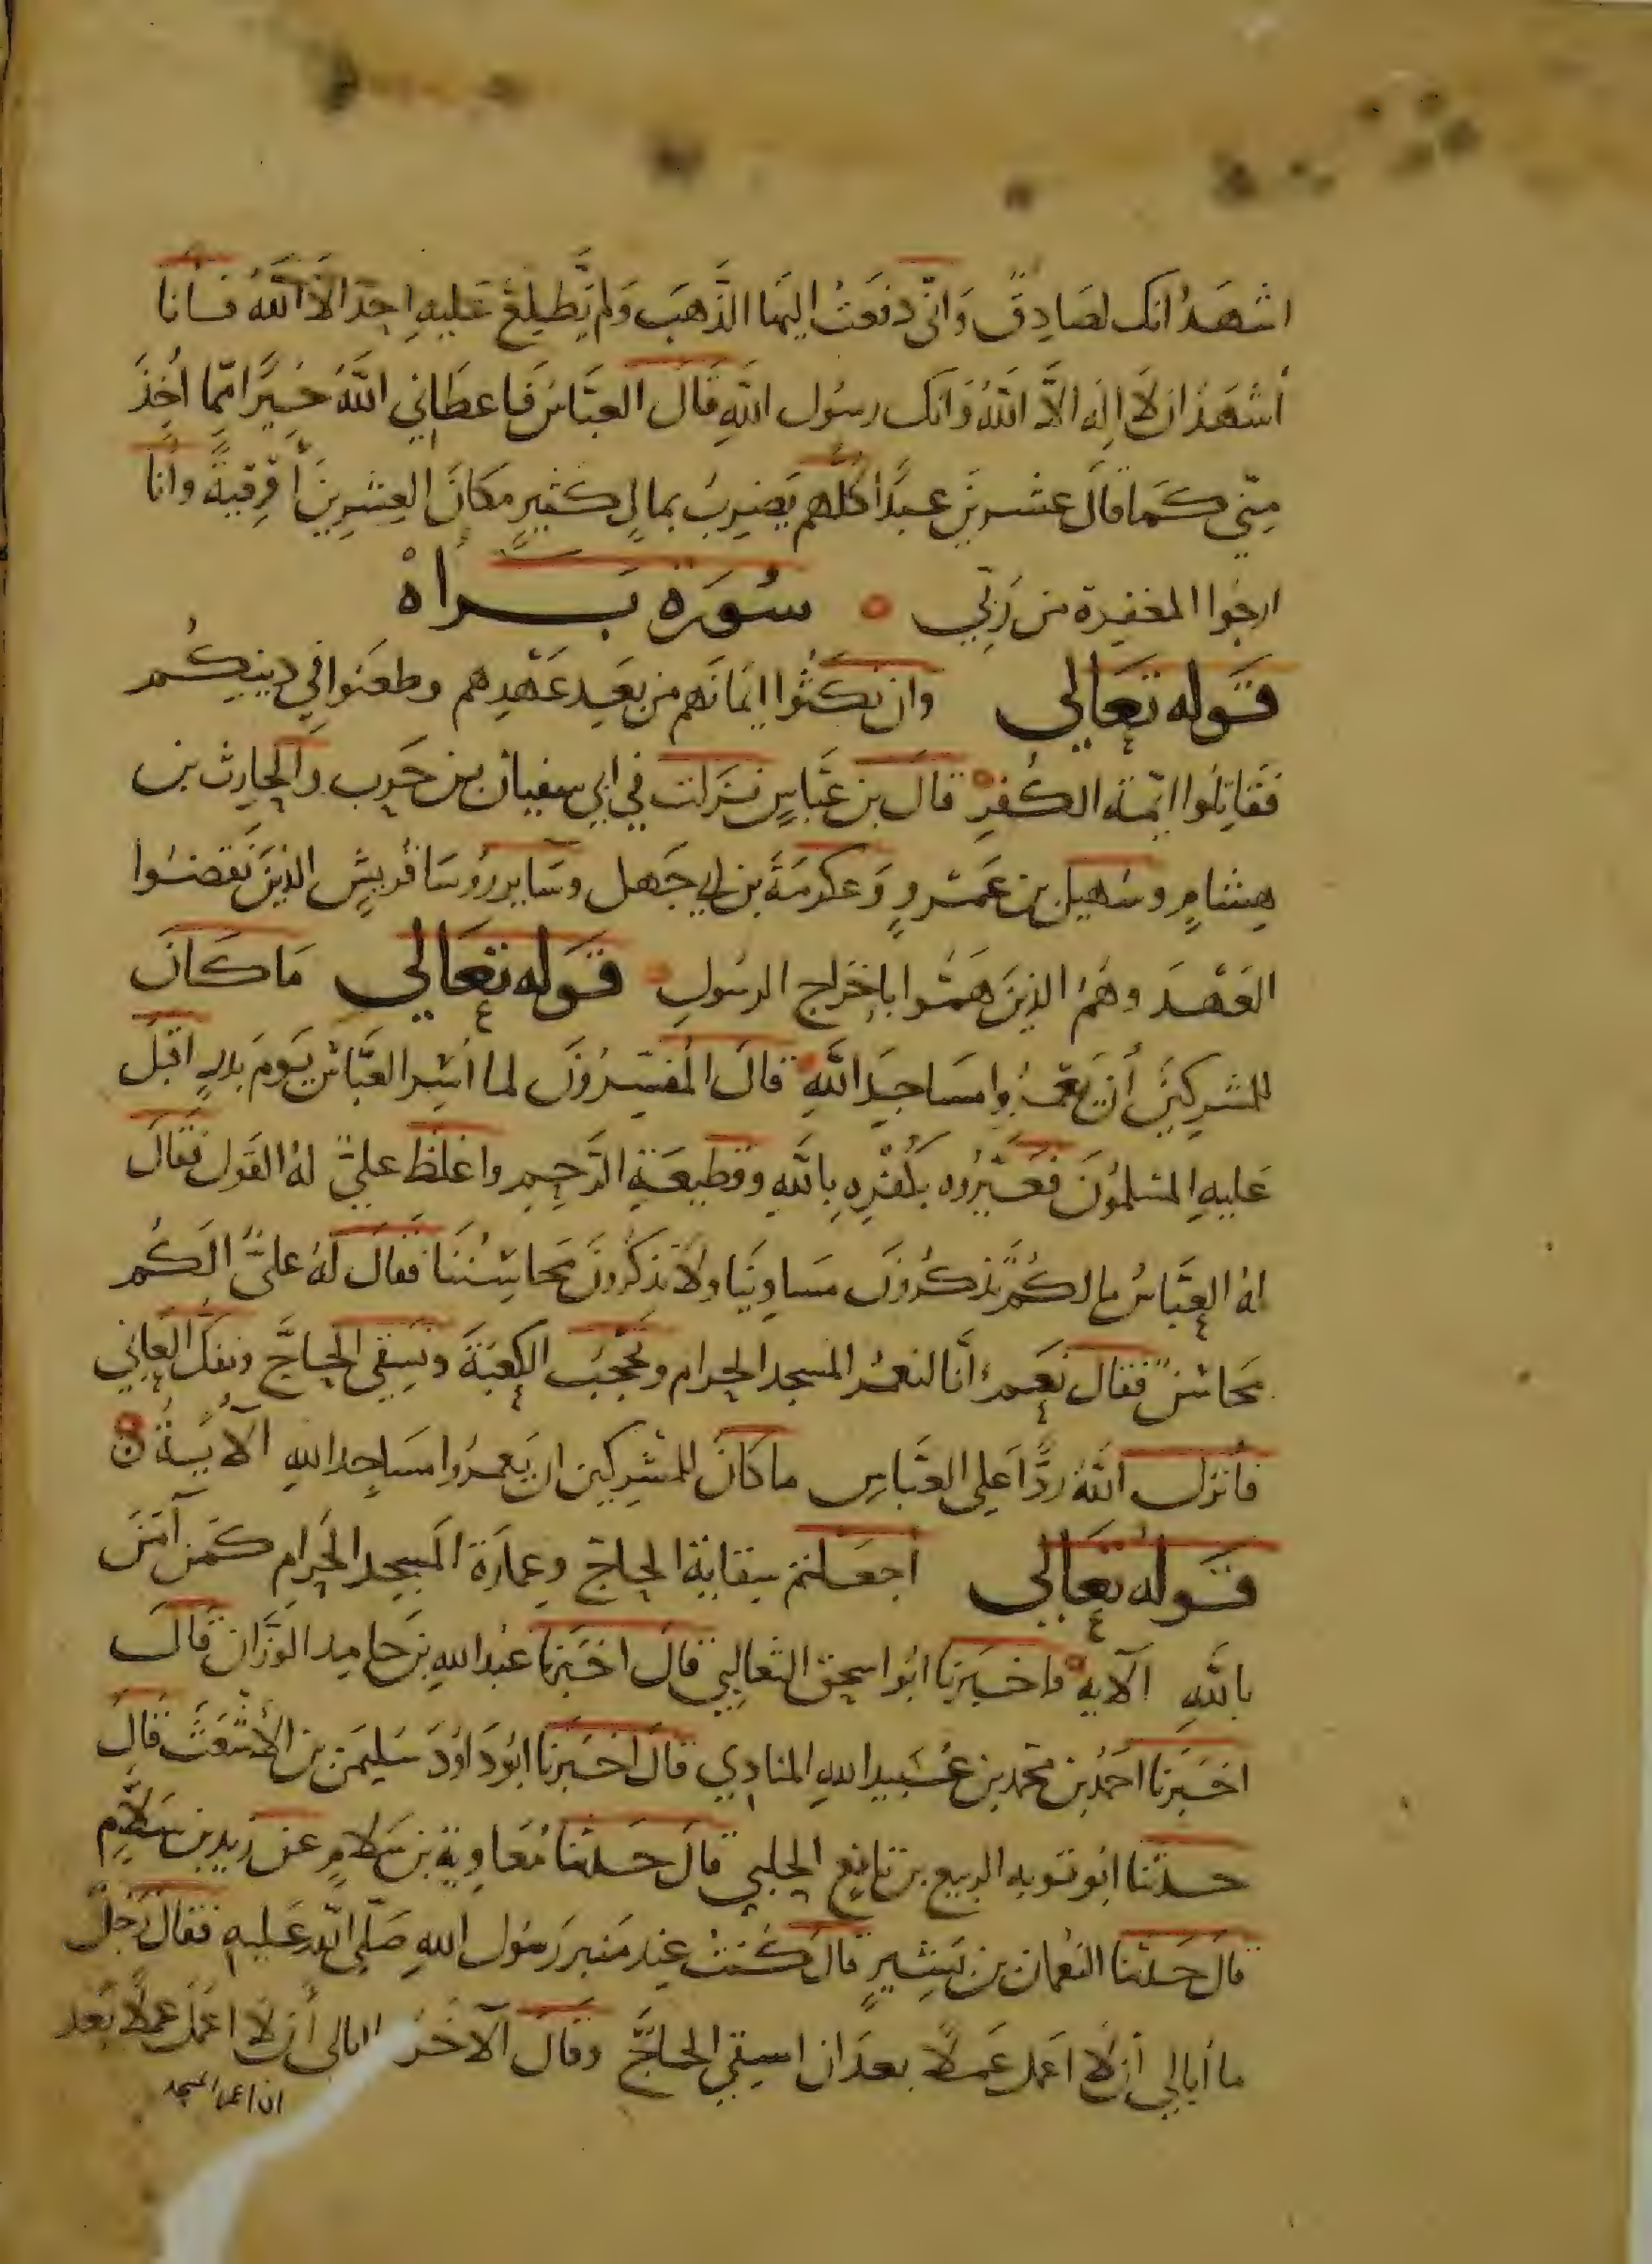 اشهد انك لصادق واني دفعت اليها الذهب ولم يطلع عليه احد الا الله فانا
أشهد ان لا اله الا الله وانك رسول الله قال العباس فاعطاني الله خيرا مما أخذ
مني كما قال عشرين عبدا كلهم يضرب بمال كثير مكان العشرين أوقية وانا
ارجوا المغفرة من ربي ه سورة براه
قوله تعالي وان نكثوا ايمانهم من بعد عهدهم وطعنوا في دينكم
فقاتلوا ايمة الكفر ه قال بن عباس نزلت في ابي سفيان بن حرب والحارث بن
هشام وسهيل بن عمرو وعكرمة بن ابي جهل وساير روسا قريش الذين نقضوا
العهد وهم الذين هموا باخراج الرسول ه قوله تعالي ما كان
للمشركين أن يعمروا مساجد الله ه قال المفسرون لما أسر العباس يوم بدر اقبل
عليه المسلمون فعيروه بكفره بالله وقطيعة الرحم واغلظ علي له القول فقال
له العباس ما لكم تذكرون مساوينا ولا تذكرون محاسننا فقال له علي الكم
محاسن فقال نعم أنا لنعمر المسجد الحرام ونحجب الكعبة ونسقي الحاج ونفك العاني
فأنزل الله ردا علي العباس ما كان للمشركين ان يعمروا مساجد الله الآية ه
قوله تعالي أجعلتم سقاية الحاج وعمارة المسجد الحرام كمن آمن
بالله الآيه ه اخبرنا ابوا سحق الثعالبي قال اخبرنا عبد الله بن حامد الوزان قال
اخبرنا احمد بن محمد بن عبيد الله المنادي قال اخبرنا ابو داود سليمن بن الأشعث قال
حدثنا ابو توبه الربيع بن نافع الحلبي قال حدثنا معاوية بن سلام عن زيد بن سلام
قال حدثنا النعمان بن بشير قال كنت عند منبر رسول الله صلي الله عليه فقال رجل
ما أبالي أن لا اعمل عملا بعد ان اسقي الحاج وقال الآخر ابالي أن لا اعمل عملا بعد
ان اعمر المسجد